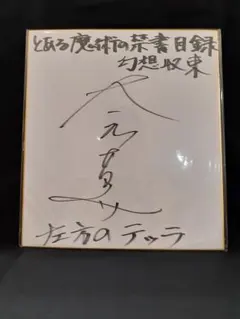 とある魔術の禁書目録
幻想収束
左方のテッラ